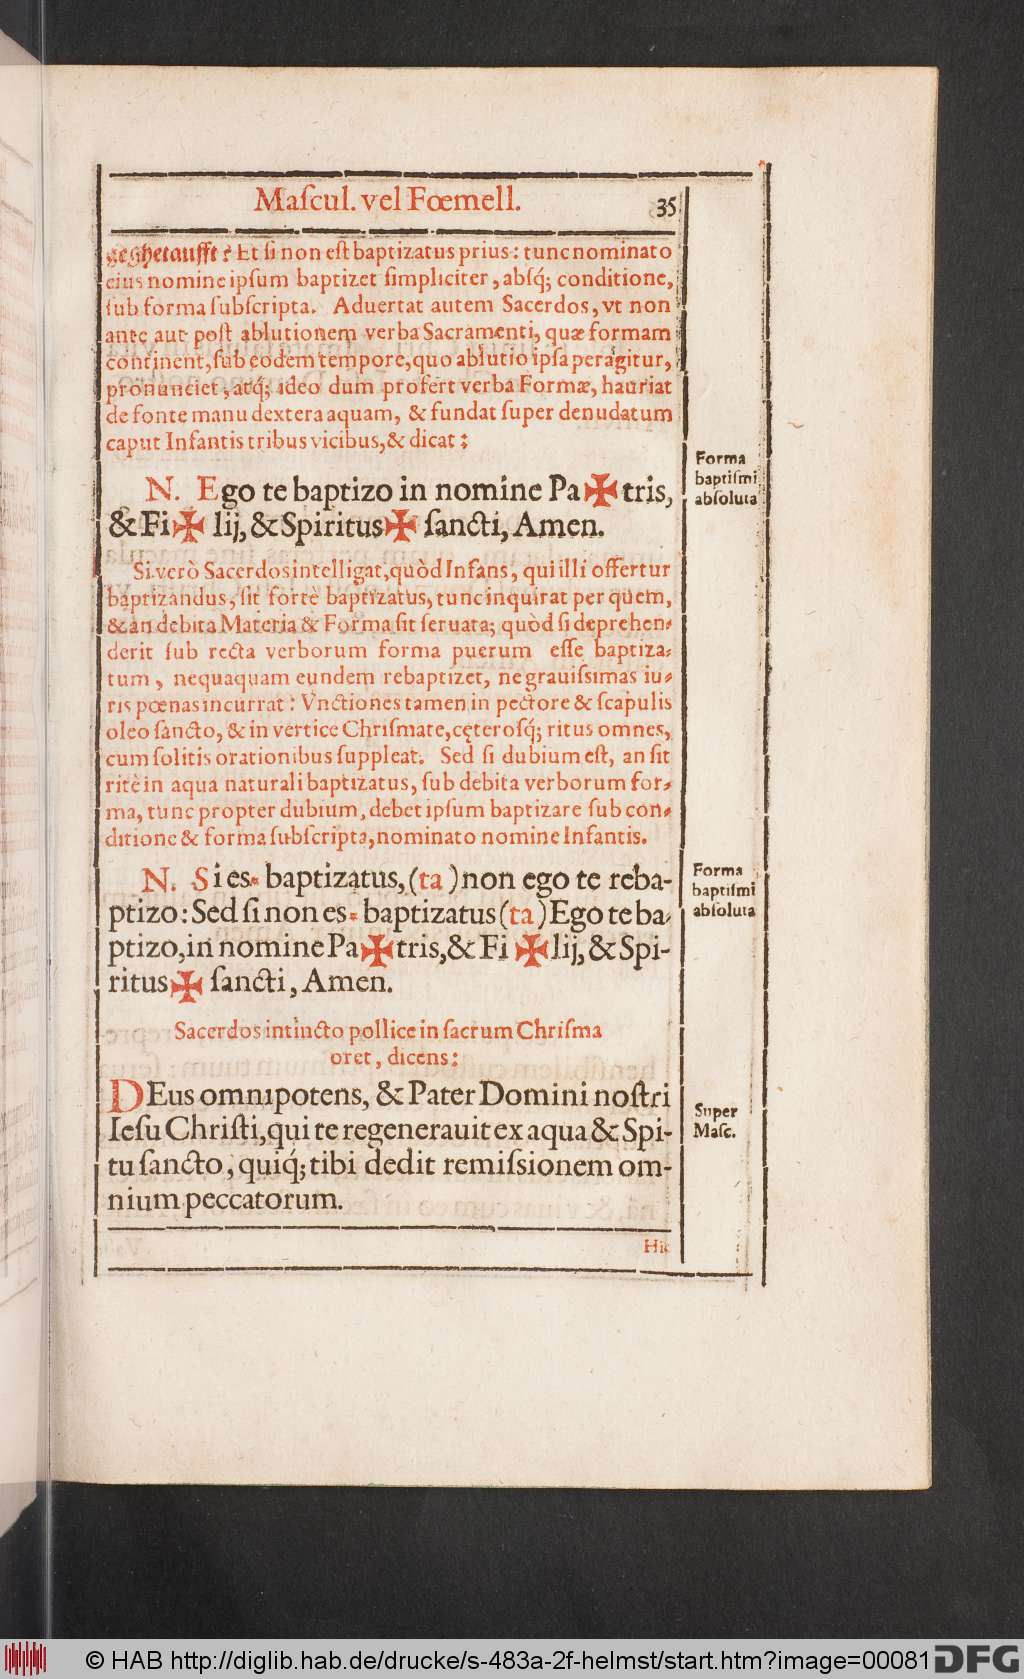 Maſcul. vel Fœmell.
35
geghetaufft? Et ſi non eſt baptizatus prius: tunc nominato
eius nomine ipſum baptizet ſimpliciter, abſq́; conditione,
ſub forma ſubſcripta. Aduertat autem Sacerdos, vt non
ante aut poſt ablutionem verba Sacramenti, quæ formam
continent, ſub eodem tempore, quo ablutio ipſa peragitur,
pronunciet, atq́; ideo dum profert verba Formæ, hauriat
de fonte manu dextera aquam, & fundat ſuper denudatum
caput Infantis tribus vicibus, & dicat:
Forma
baptiſmi
abſoluta
N. Ego te baptizo in nomine Pa ✠ tris,
& Fi ✠ lij, & Spiritus ✠ ſancti, Amen.
Si verò Sacerdos intelligat, quòd Infans, qui illi offertur
baptizandus, ſit fortè baptizatus, tunc inquirat per quem,
& an debita Materia & Forma ſit ſeruata; quòd ſi deprehen-
derit ſub recta verborum forma puerum eſſe baptiza-
tum, nequaquam eundem rebaptizet, ne grauiſsimas iu-
ris pœnas incurrat: Vnctiones tamen in pectore & ſcapulis
oleo ſancto, & in vertice Chriſmate, cęterosq́; ritus omnes,
cum ſolitis orationibus ſuppleat. Sed ſi dubium eſt, an ſit
ritè in aqua naturali baptizatus, ſub debita verborum for-
ma, tunc propter dubium, debet ipſum baptizare ſub con-
ditione & forma ſubſcripta, nominato nomine Infantis.
Forma
baptiſmi
abſoluta
N. Si es baptizatus, (ta) non ego te reba-
ptizo: Sed ſi non es baptizatus (ta) Ego te ba-
ptizo, in nomine Pa ✠ tris, & Fi ✠ lij, & Spi-
ritus ✠ ſancti, Amen.
Sacerdos intincto pollice in ſacrum Chriſma
oret, dicens:
Super
Maſc.
DEus omnipotens, & Pater Domini noſtri
Ieſu Chriſti, qui te regenerauit ex aqua & Spi-
tu ſancto, quiq́; tibi dedit remiſsionem om-
nium peccatorum.
Hic
© HAB http://diglib.hab.de/drucke/s-483a-2f-helmst/start.htm?image=00081 DFG